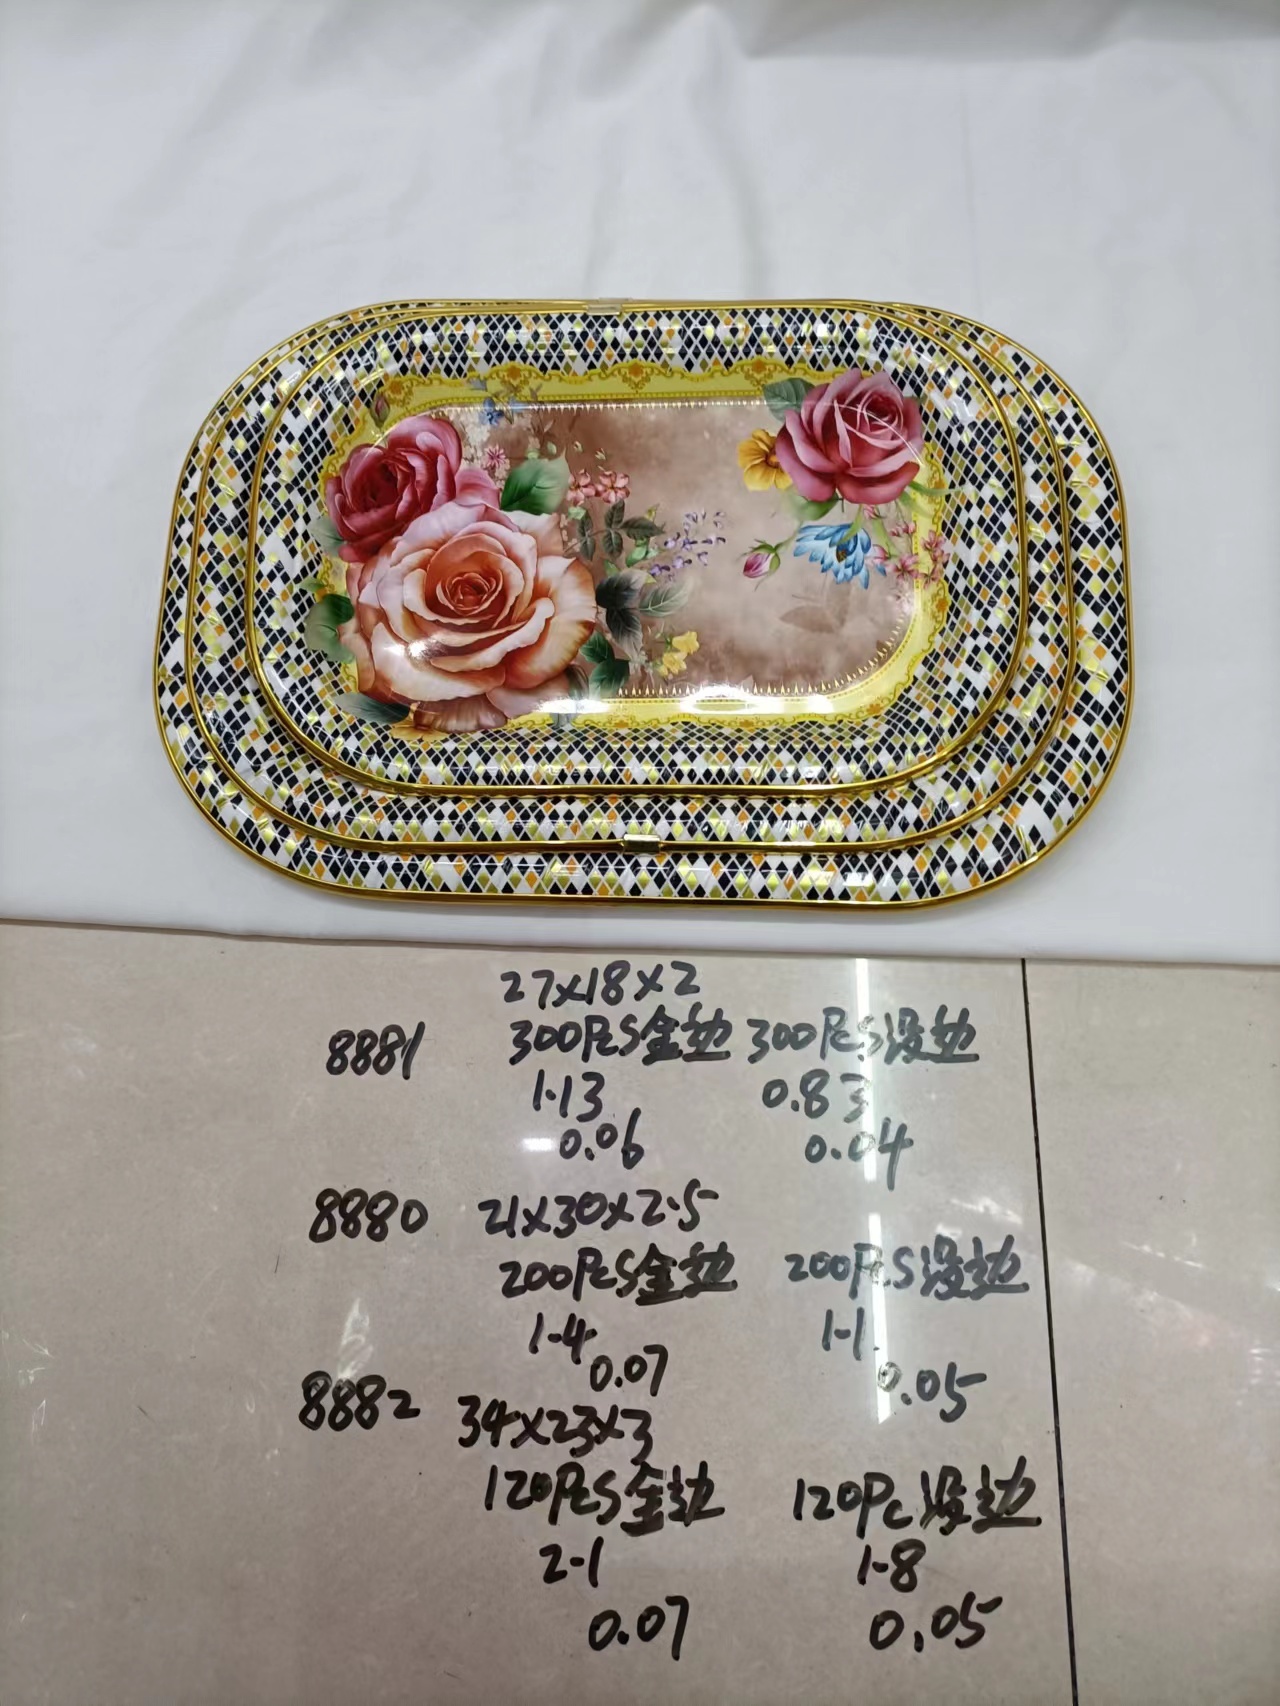 27x18x2
8881 300Pcs金边 300Pcs没边
1.13 0.83
0.06 0.04
8880 21x30x2.5
200Pcs金边 200Pcs没边
1-4 1-1
0.07 0.05
8882 34x23x3
120Pcs金边 120Pc没边
2-1 1-8
0.07 0.05